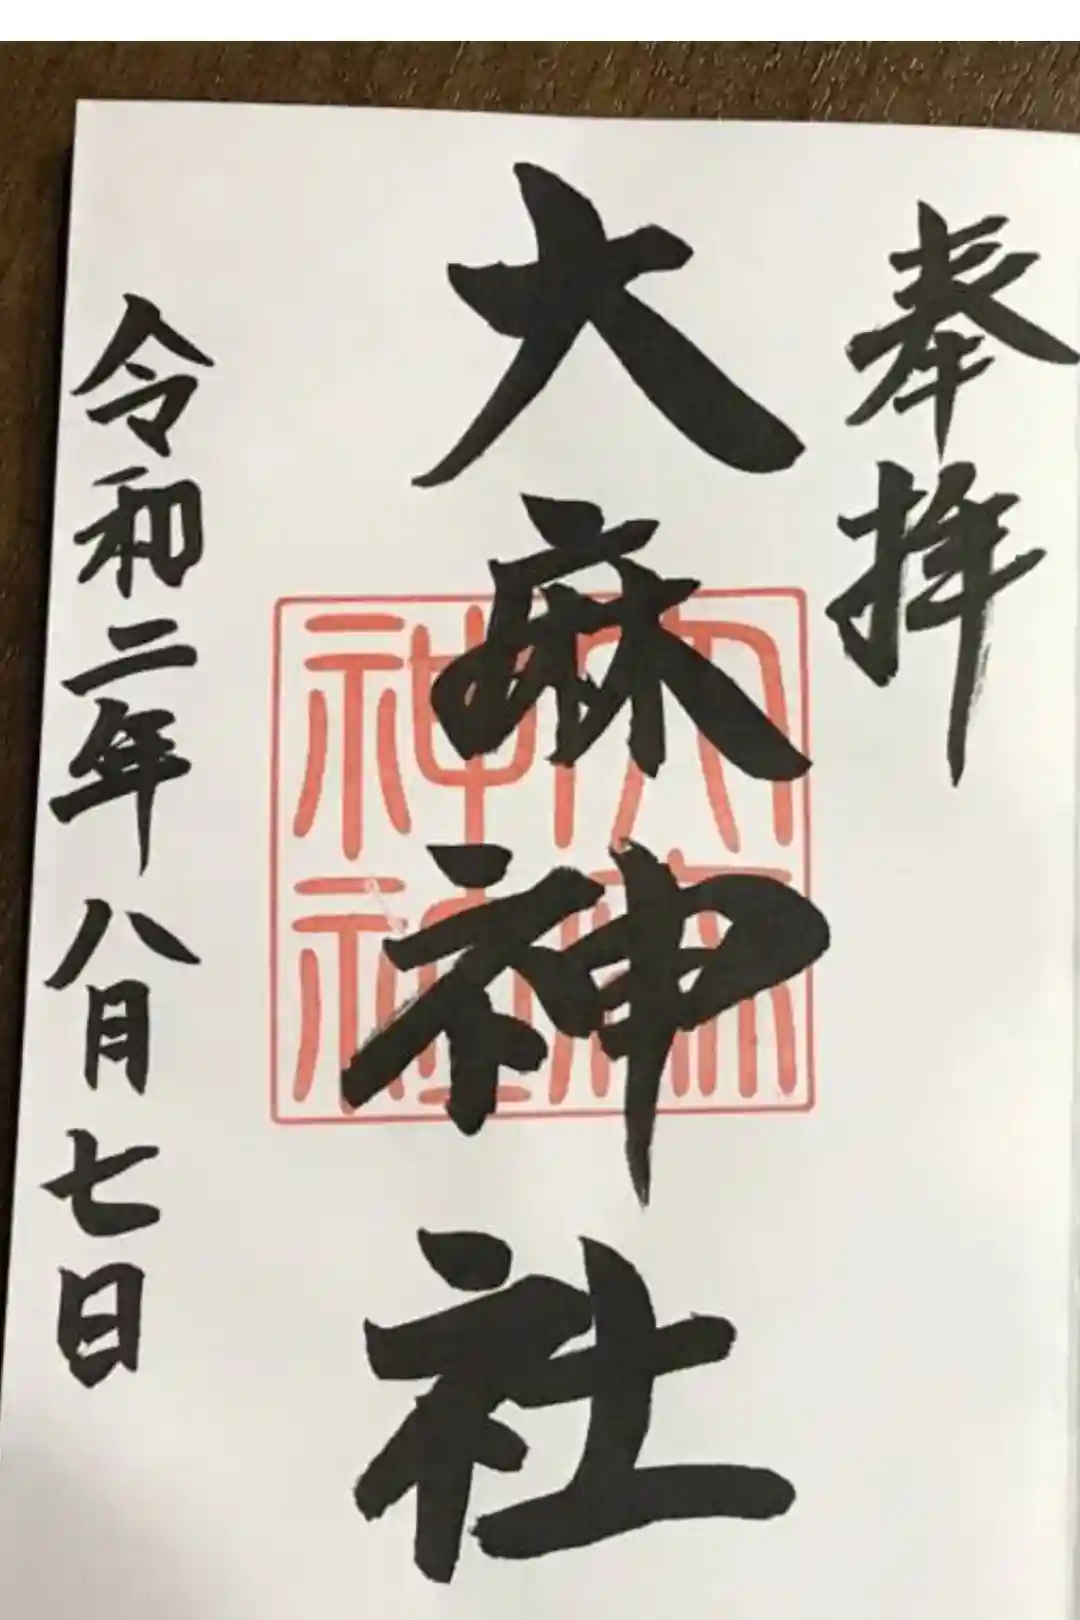 奉拝
大麻神社
大麻
神社
令和二年八月七日